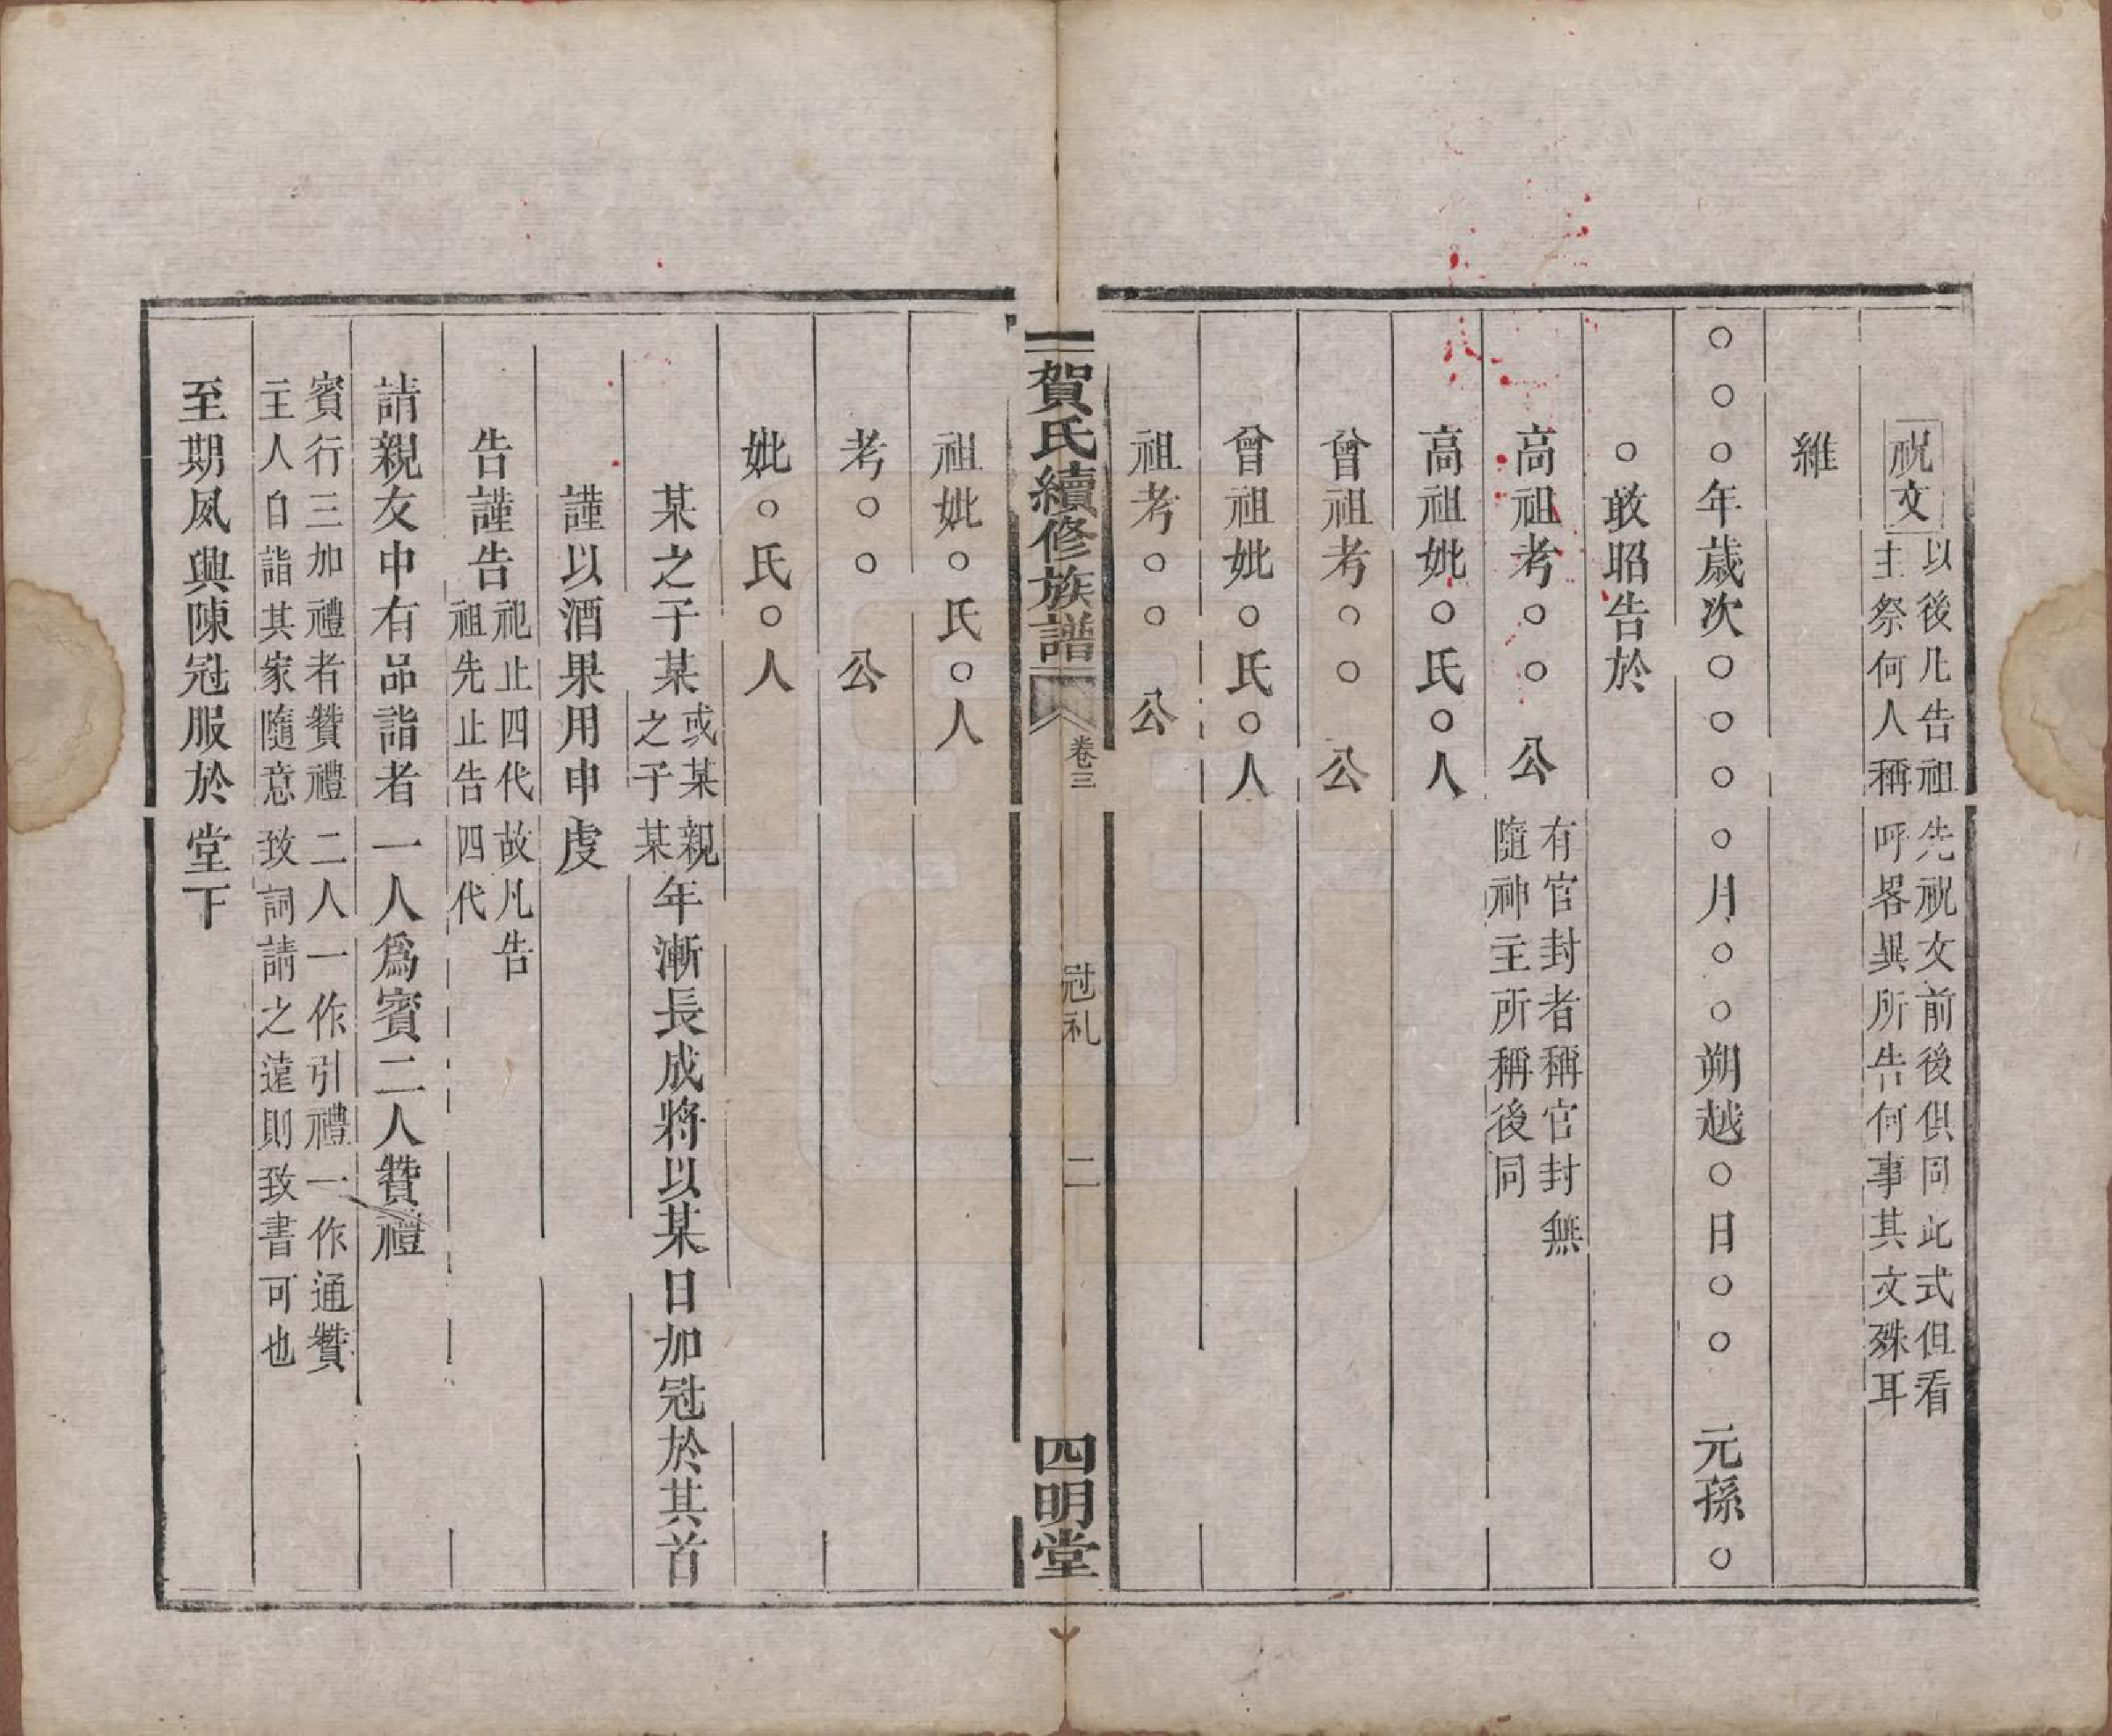 祝文 以後凡告祖先祝文前後俱同此式但看
主祭何人稱呼畧異所告何事其文殊耳
維
○○○年歲次○○○○月○○朔越○日○○元孫○
○敢昭告於
高祖考○○公 有官封者稱官封無
隨神主所稱後同
高祖妣○氏○人
曾祖考○○公
曾祖妣○氏○人
祖考○○公
賀氏續修族譜 卷三 冠礼 二 四明堂
祖妣○氏○人
考○○公
妣○氏○人
某之子某 或某親
之子某 年漸長成將以某日加冠於其首
謹以酒果用申虔
告謹告 祀止四代故凡告
祖先止告四代
請親友中有品詣者一人爲賓二人贊禮
賓行三加禮者贊禮二人一作引禮一作通贊
主人自詣其家隨意致詞請之遠則致書可也
至期夙興陳冠服於堂下